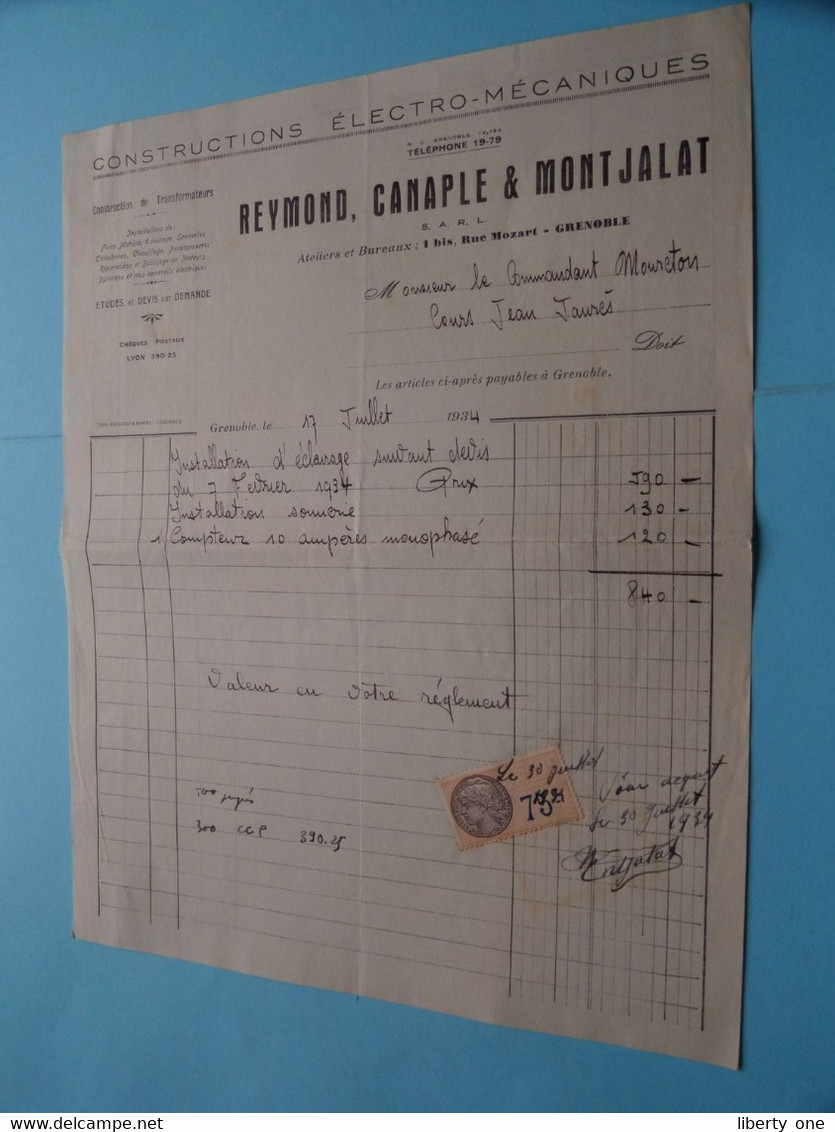 CONSTRUCTIONS ÉLECTRO-MÉCANIQUES
R. C. GRENOBLE
TÉLÉPHONE 19-79
REYMOND, CANAPLE & MONTJALAT
S. A. R. L.
Ateliers et Bureaux : 1 bis, Rue Mozart - GRENOBLE
Construction de Transformateurs
Installations de :
Force Motrice, Eclairage, Sonneries
Téléphones, Chauffage, Paratonnerres
Réparations et Bobinage de Moteurs
Dynamos et tous appareils électriques
ETUDES et DEVIS sur DEMANDE
CHÈQUES POSTAUX
LYON 390-25
Monsieur le Commandant Moureton
Cours Jean Jaurès
Doit
Les articles ci-après payables à Grenoble.
Grenoble, le 17 Juillet 1934
Installation d'éclairage suivant devis
du 7 Février 1934 Prix 590 —
Installation sonnerie 130 -
1 Compteur 10 ampères monophasé 120 -
840 —
Valeur en votre réglement
Le 30 juillet
Pour acquit
le 30 juillet
1934
Montjalat
300 CCP 390.25
delcampe.net
liberty one